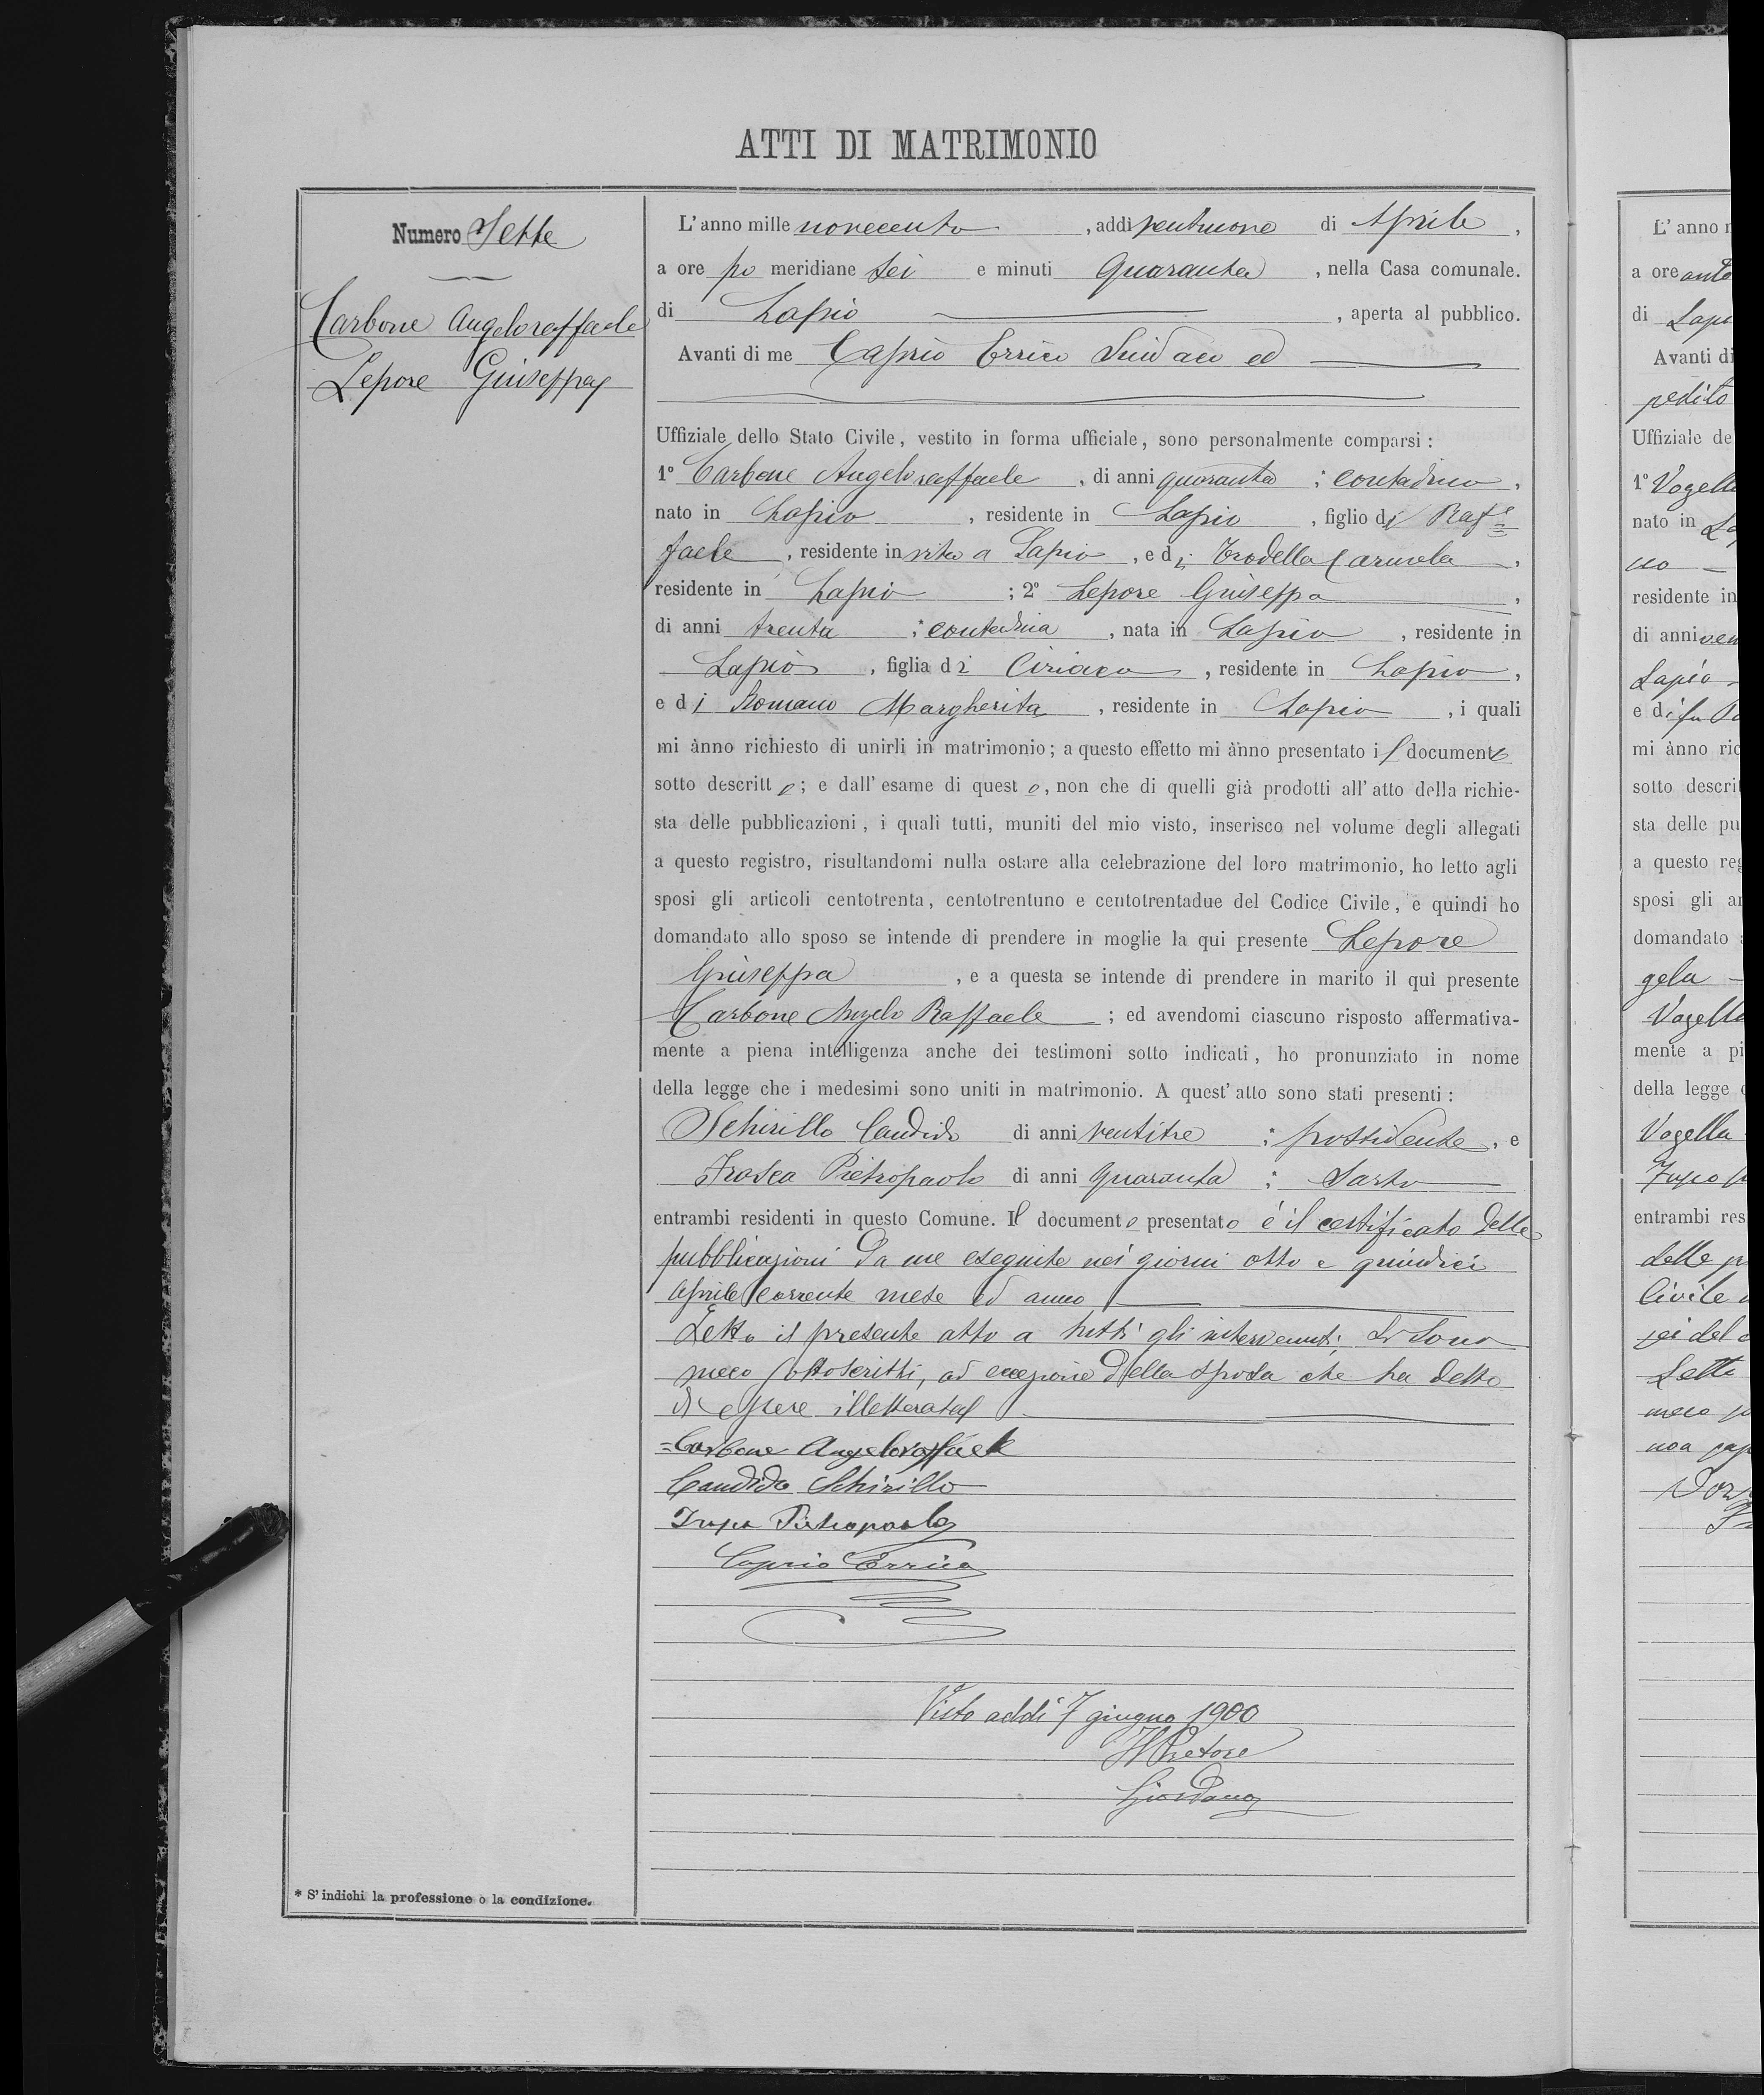 ATTI DI MATRIMONIO
Numero Sette
Carbone Angeloraffaele
Lepore Giuseppa
L'anno mille novecento , addì ventinove di Aprile ,
a ore po meridiane sei e minuti quaranta , nella Casa comunale
di Lapio , aperta al pubblico.
Avanti di me Caprio Errico Sindaco ed
Uffiziale dello Stato Civile, vestito in forma ufficiale, sono personalmente comparsi :
1° Carbone Angeloraffaele , di anni quaranta ; contadino ,
nato in Lapio , residente in Lapio , figlio di Raf=
faele , residente in vita a Lapio , e di Trodella Carmela ,
residente in Lapio ; 2° Lepore Giuseppa ,
di anni trenta ; contadina , nata in Lapio , residente in
Lapio , figlia di Ciriaco , residente in Lapio ,
e di Romano Margherita , residente in Lapio , i quali
mi ànno richiesto di unirli in matrimonio; a questo effetto mi ànno presentato il documento
sotto descritto; e dall'esame di questo, non che di quelli già prodotti all'atto della richie-
sta delle pubblicazioni, i quali tutti, muniti del mio visto, inserisco nel volume degli allegati
a questo registro, risultandomi nulla ostare alla celebrazione del loro matrimonio, ho letto agli
sposi gli articoli centotrenta, centotrentuno e centotrentadue del Codice Civile, e quindi ho
domandato allo sposo se intende di prendere in moglie la qui presente Lepore
Giuseppa , e a questa se intende di prendere in marito il qui presente
Carbone Angelo Raffaele ; ed avendomi ciascuno risposto affermativa-
mente a piena intelligenza anche dei testimoni sotto indicati, ho pronunziato in nome
della legge che i medesimi sono uniti in matrimonio. A quest'atto sono stati presenti :
Schirillo Candido di anni ventitre ; possidente , e
Pietropaolo di anni quaranta ; Sarto
entrambi residenti in questo Comune. Il documento presentato è il certificato delle
pubblicazioni da me eseguite nei giorni otto e quindici
Aprile corrente mese ed anno
Letto il presente atto a tutti gli intervenuti, si sono
meco sottoscritti, ad eccezione della sposa che ha detto
di essere illetterata
=Carbone Angeloraffaele
Candido Schirillo
Pietropaolo
Caprio Errico
Visto addì 7 giugno 1900
Il Pretore
Giordano
* S'indichi la professione o la condizione.
L'anno
a ore ante
di
Avanti di
pedito
Uffiziale de
1°
nato in
no
residente in
di anni
Lapio
e di fu
mi ànno ric
sotto descrit
sta delle pu
a questo reg
sposi gli ar
domandato
gela
mente a pi
della legge
Vogella
entrambi res
delle p
Civile
Letto
meco